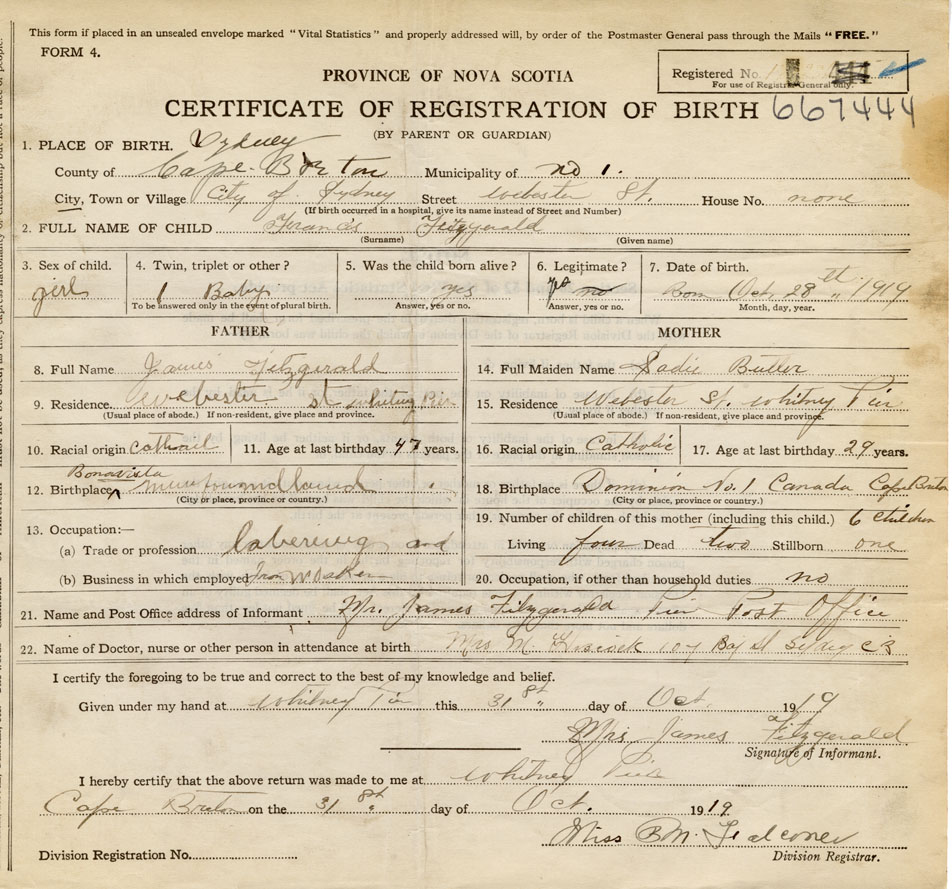 This form if placed in an unsealed envelope marked "Vital Statistics" and properly addressed will, by order of the Postmaster General pass through the Mails "FREE."
FORM 4.
Registered No.
For use of Registrar General only.
PROVINCE OF NOVA SCOTIA
CERTIFICATE OF REGISTRATION OF BIRTH 667444
(BY PARENT OR GUARDIAN)
1. PLACE OF BIRTH. Sydney
County of Cape Breton Municipality of no 1.
City, Town or Village City of Sydney Street Webester St. House No. none
(If birth occurred in a hospital, give its name instead of Street and Number)
2. FULL NAME OF CHILD Francis Fitzgerald
(Surname) (Given name)
3. Sex of child. 4. Twin, triplet or other? 5. Was the child born alive? 6. Legitimate? 7. Date of birth.
girl 1 Baby yes yes no Born Oct 28th 1919
To be answered only in the event of plural birth. Answer, yes or no. Answer, yes or no. Month, day, year.
FATHER MOTHER
8. Full Name James Fitzgerald
14. Full Maiden Name Sadie Butler
9. Residence. Webester St Whitney Pier
(Usual place of abode.) If non-resident, give place and province.
15. Residence Webester St. Whitney Pier
(Usual place of abode.) If non-resident, give place and province.
10. Racial origin 11. Age at last birthday 47 years.
16. Racial origin Catholic 17. Age at last birthday 29 years.
Bonavista
12. Birthplace newfoundland
(City or place, province or country.)
18. Birthplace Dominion No. 1 Canada Cape Breton
(City or place, province or country.)
13. Occupation:—
(a) Trade or profession labereing and
(b) Business in which employed
19. Number of children of this mother (including this child.) 6 children
Living four Dead two Stillborn one
20. Occupation, if other than household duties. no
21. Name and Post Office address of Informant Mr. James Fitzgerald Pier Post Office
22. Name of Doctor, nurse or other person in attendance at birth Mrs M 107 Bay St Sydney CB
I certify the foregoing to be true and correct to the best of my knowledge and belief.
Given under my hand at Whitney Pier this 31 st day of Oct. 1919
Mrs James Fitzgerald
Signature of Informant.
I hereby certify that the above return was made to me at Whitney Pier
Cape Breton on the 31 st day of Oct. 1919
Miss B.M. Falconer
Division Registrar.
Division Registration No.